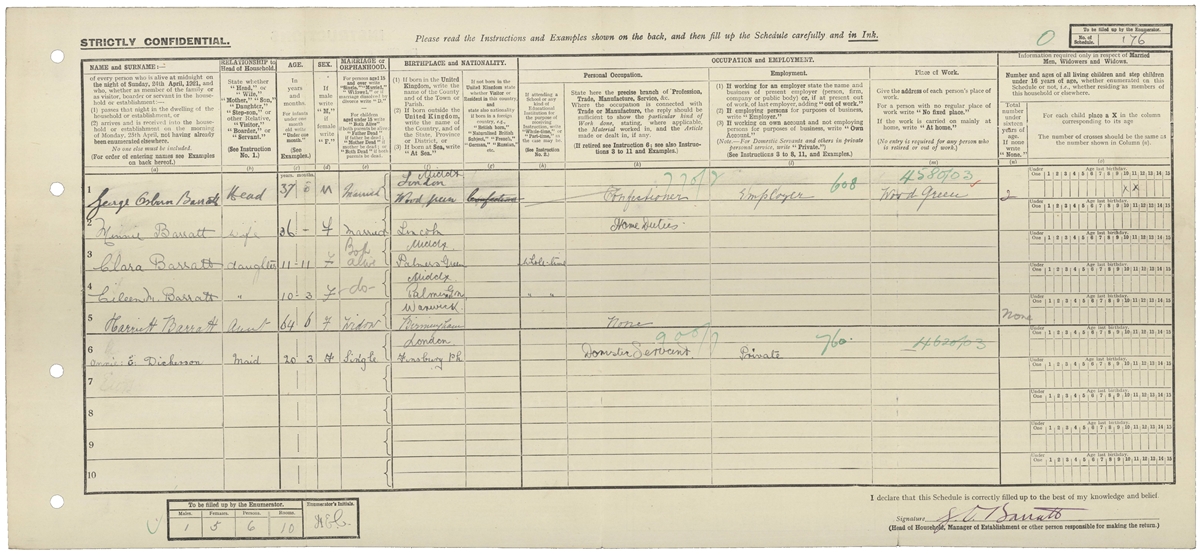 STRICTLY CONFIDENTIAL.
Please read the Instructions and Examples shown on the back, and then fill up the Schedule carefully and in Ink.
0
To be filled up by the Enumerator.
No. of Schedule. 176
NAME and SURNAME:—
of every person who is alive at midnight on
the night of Sunday, 24th April, 1921, and
who, whether as member of the family or
as visitor, boarder or servant in the house-
hold or establishment:—
(1) passes that night in the dwelling of the
household or establishment, or
(2) arrives and is received into the house-
hold or establishment on the morning
of Monday, 25th April, not having already
been enumerated elsewhere.
No one else must be included.
(For order of entering names see Examples
on back hereof.)
(a)
RELATIONSHIP to
Head of Household.
State whether
"Head," or
"Wife,"
"Mother," "Son,"
"Daughter,"
"Step-son," or
other Relative,
"Visitor,"
"Boarder," or
"Servant."
(See Instruction
No. 1.)
(b)
AGE.
In
years
and
months.
For infants
under one
month
old write
"Under one
month."
(See
Examples.)
(c)
years. months.
SEX.
If
male
write
"M,"
if
female
write
"F."
(d)
MARRIAGE or
ORPHANHOOD.
(e)
BIRTHPLACE and NATIONALITY.
(1) If born in the United
Kingdom, write the
name of the County
and of the Town or
Parish.
(2) If born outside the
United Kingdom,
write the name of
the Country, and of
the State, Province
or District, or
(3) If born at Sea, write
"At Sea."
(f)
(g)
(h)
OCCUPATION and EMPLOYMENT.
Personal Occupation.
State here the precise branch of Profession,
Trade, Manufacture, Service, &c.
Where the occupation is connected with
Trade or Manufacture, the reply should be
sufficient to show the particular kind of
Work done, stating, where applicable,
the Material worked in, and the Article
made or dealt in, if any.
(If retired see Instruction 6; see also Instruc-
tions 3 to 11 and Examples.)
(k)
Employment.
(1) If working for an employer state the name and
business of present employer (person, firm,
company or public body) or, if at present out
of work, of last employer, adding "out of work."
(2) If employing persons for purposes of business,
write "Employer."
(3) If working on own account and not employing
persons for purposes of business, write "Own
Account."
(Note.—For Domestic Servants and others in private
personal service, write "Private.")
(See Instructions 3 to 8, 11, and Examples.)
(l)
Place of Work.
Give the address of each person's place of
work.
For a person with no regular place of
work write "No fixed place."
If the work is carried on mainly at
home, write "At home."
(No entry is required for any person who
is retired or out of work.)
(m)
Information required only in respect of Married
Men, Widowers and Widows.
Number and ages of all living children and step children
under 16 years of age, whether enumerated on this
Schedule or not, i.e., whether residing as members of
this household or elsewhere.
Total
number
under
sixteen
years of
age.
If none
write
"None."
(n)
For each child place a X in the column
corresponding to its age
The number of crosses should be the same as
the number shown in Column (n).
Under One 1 2 3 4 5 6 7 8 9 10 11 12 13 14 15
Age last birthday.
1 George Osborn Barratt Head 37 0 M Married London Middx Wood Green Confectioner 770/2 Employer 608 Wood Green 4580/03 2 X X
2 Minnie Barratt Wife 36 - F Married Lincoln Home Duties
3 Clara Barratt daughter 11-11 F Both alive Middx. Palmers Green Whole-time
4 Eileen M. Barratt " 10-3 F -do- Middx Palmers Grn " "
5 Harriett Barratt Aunt 64 6 F Widow Warwick Birmingham None None
6 Annie E. Dickerson Maid 20 3 F Single London Finsbury Pk Domestic Servant 900/1 Private 760 4620/03
7
8
9
10
To be filled up by the Enumerator.
Males. Females. Persons. Rooms.
1 5 6 10
Enumerator's Initials.
I declare that this Schedule is correctly filled up to the best of my knowledge and belief.
Signature G. O. Barratt
(Head of Household, Manager of Establishment or other person responsible for making the return.)